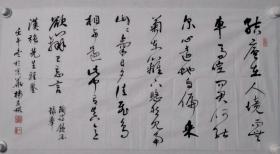 結廬在人境無
車馬喧問君何能
尔心遠地自偏采
菊東籬下悠然見南
山山氣日夕佳飛鳥
相与還此中有真意
欲辨已忘言
先生雅鑒